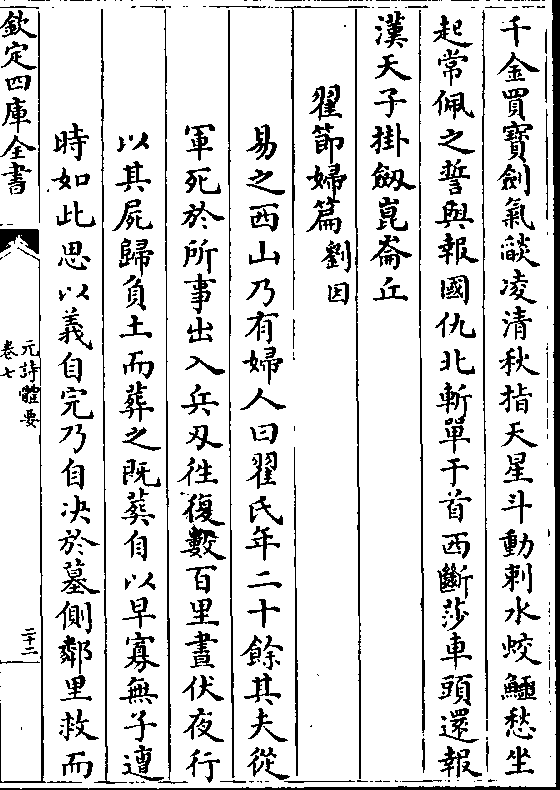 千金買寶劍氣燄凌清秋指天星斗動剌水蛟鱷愁坐
起常佩之誓與報國仇北斬單于首西斷莎車頭還報
漢天子掛劔崑崙丘
翟節婦篇 劉因
易之西山乃有婦人曰翟氏年二十餘其夫從
軍死於所事出入兵刃徃復數百里晝伏夜行
以其屍歸負土而葬之既葬自以早寡無子遭
時如此思以義自完乃自决於墓側鄰里救而
欽定四庫全書
元詩體要
卷七
二十二